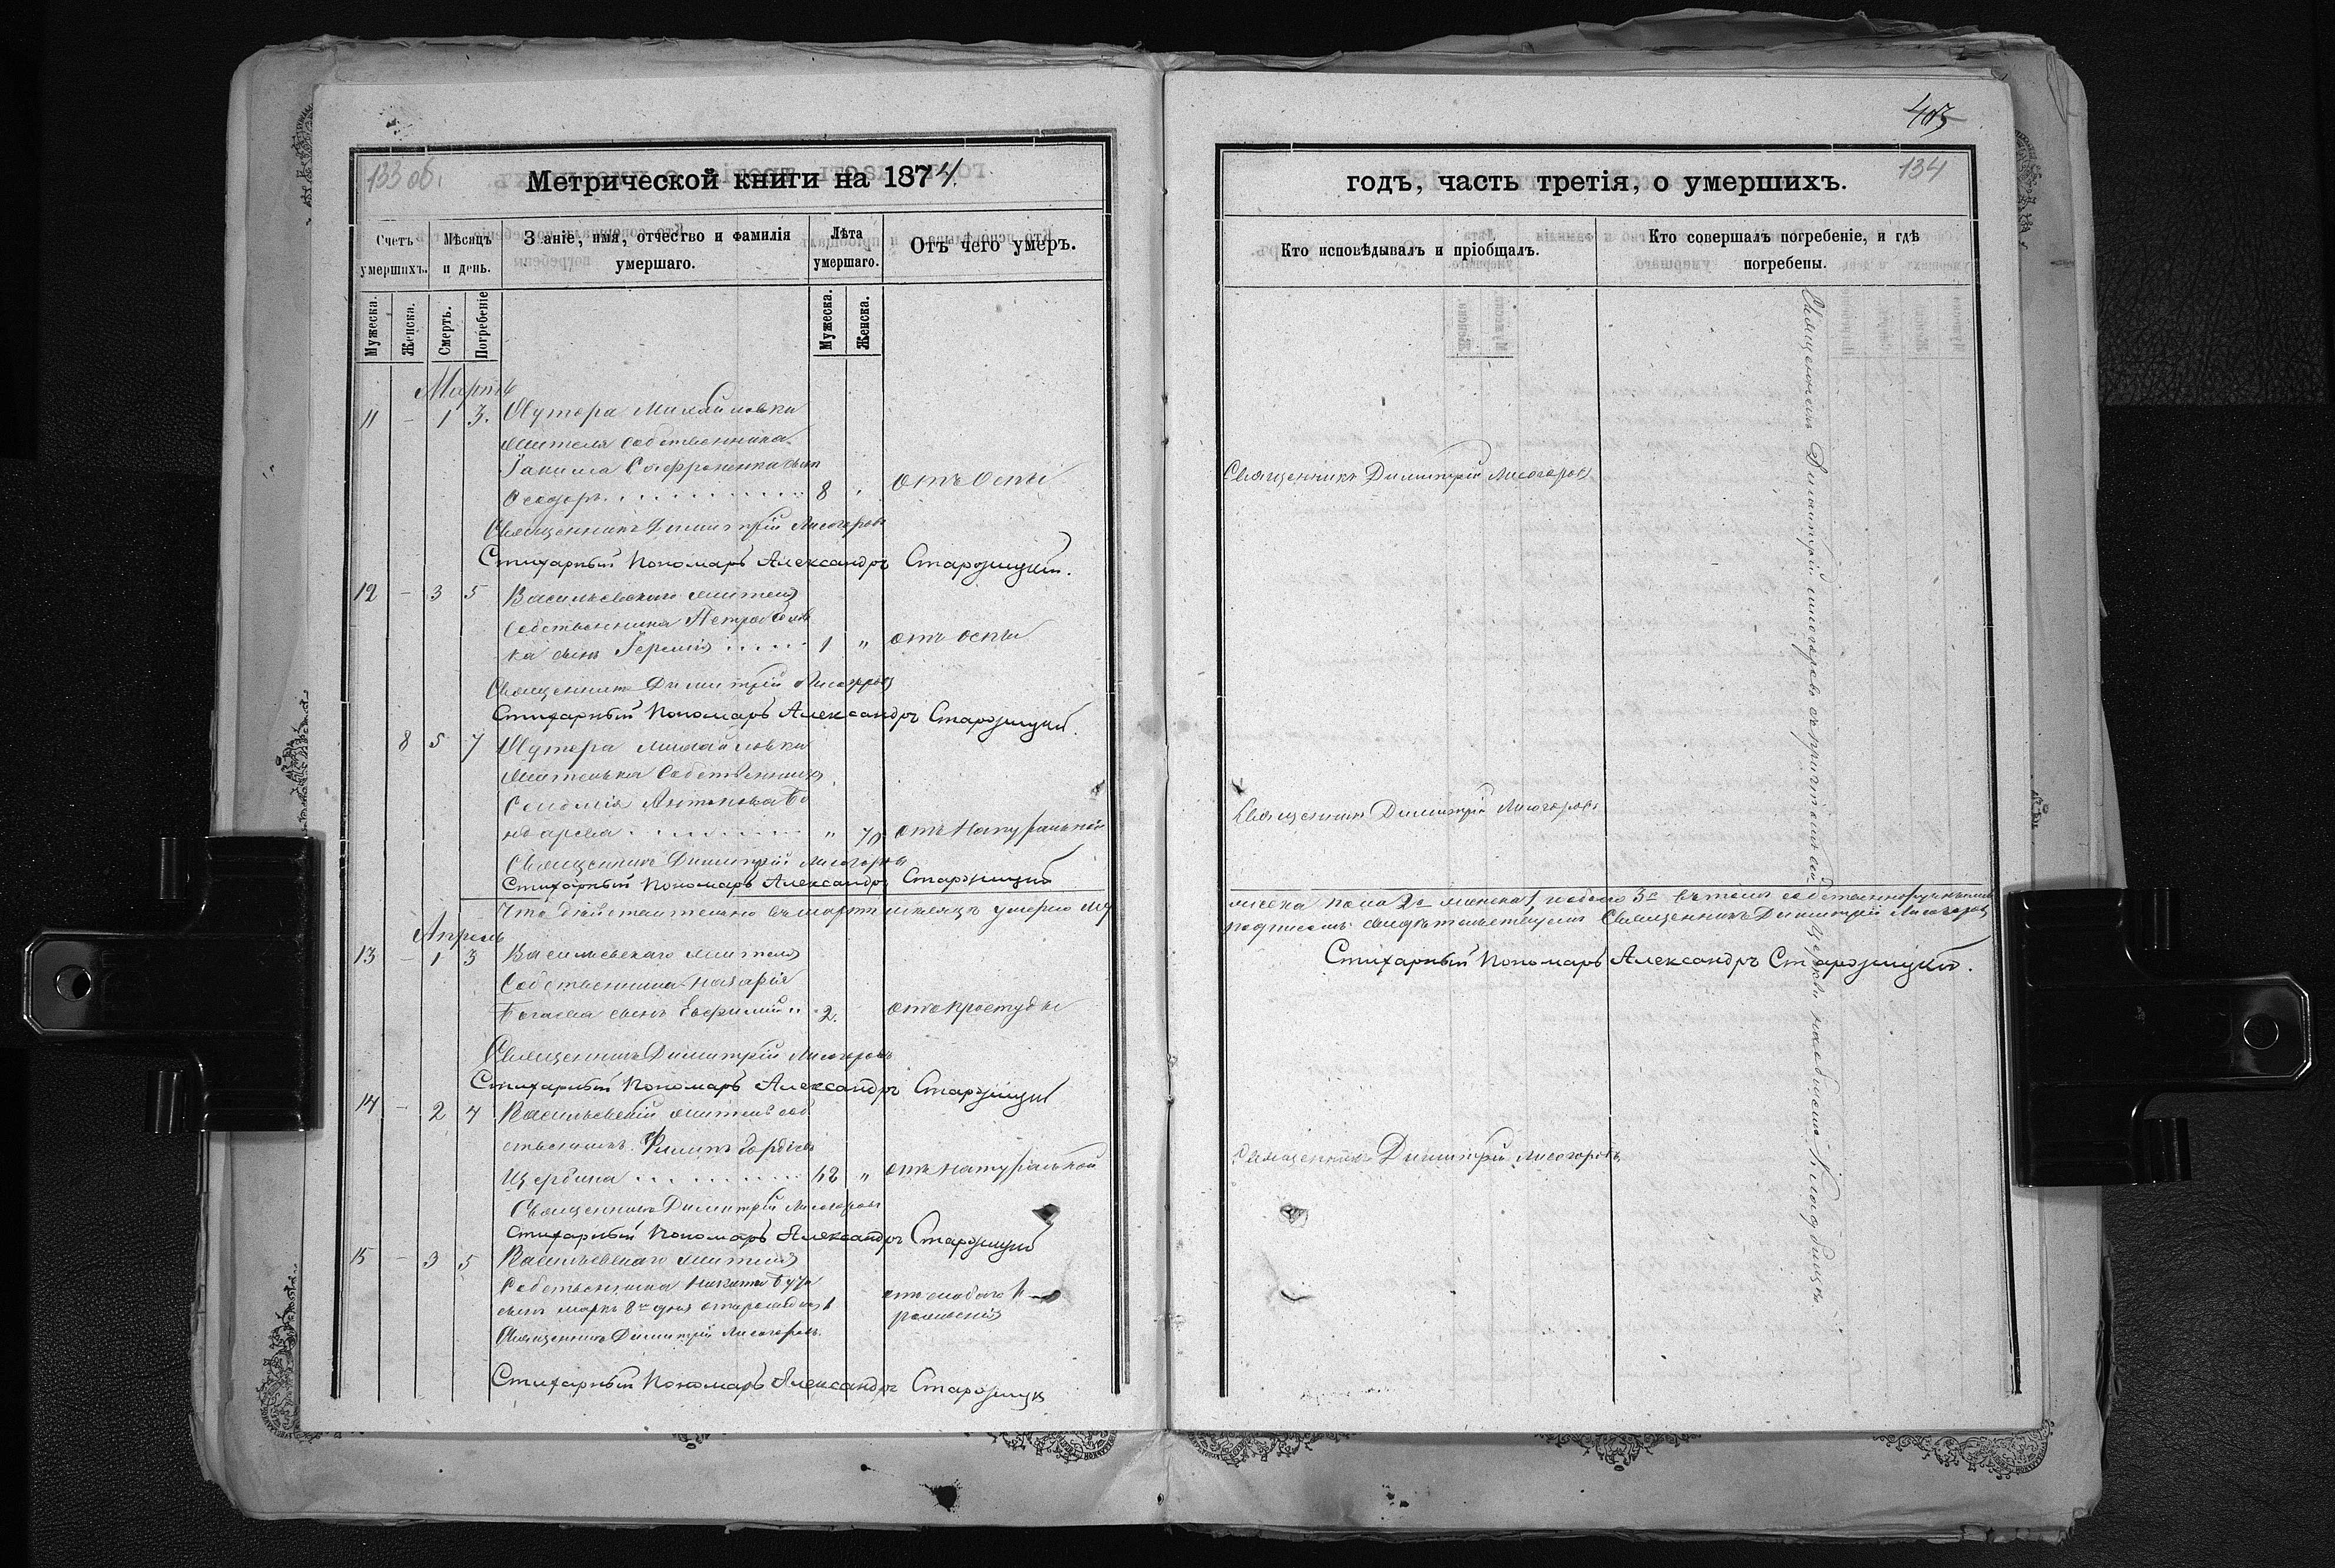 133 об.
Метрической книги на 1874.
Счетъ умершихъ.
Мѣсяцъ и день.
Званіе, имя, отчество и фамилія умершаго.
Лѣта умершаго.
Отъ чего умеръ.
Мужеска.
Женска.
Смерть.
Погребеніе
Мужеска.
Женска.
Мартъ
11 - 1 3. Хутора Михайловки
жителя собственника
Іакима Софроненка сынъ
Ѳеодоръ 8 отъ оспы
Священникъ Димитрій Лисогоровъ
Стихарный Пономарь Александръ
12 - 3 5 Васильевскаго жителя
собственника Петра
ка сынъ Іеремія 1 " отъ оспы
Священникъ Димитрій Лисогоровъ
Стихарный Пономарь Александръ
8 5 7 Хутора Михайловки
жителька собственница
Антонова
" 70 отъ натуральной
Священникъ Димитрій Лисогоровъ
Стихарный Пономарь Александръ
Что дѣйствительно въ мартѣ мѣсяцѣ умерло му
Апрель
13 - 1 3 Васильевскаго жителя
собственника Назарія
сынъ Евфимій 2. отъ простуды
Священникъ Димитрій Лисогоровъ
Стихарный Пономарь Александръ
14 - 2 4 Васильевскій житель соб
ственникъ Филипъ Гордіевъ
Щербина 68 " отъ натуральной
Священникъ Димитрій Лисогоровъ
Стихарный Пономарь Александръ
15 - 3 5 Васильевскаго жителя
собственника Никиты
сынъ Маркъ 8 дня отъ слабаго
Священникъ Димитрій Лисогоровъ
Стихарный Пономарь Александръ
403
134
годъ, часть третія, о умершихъ.
Кто исповѣдывалъ и пріобщалъ.
Кто совершалъ погребеніе, и гдѣ погребены.
Священникъ Димитрій Лисогоровъ
Священникъ Димитрій Лисогоровъ
жеска пола 2 женска 1 обоего 3 въ томъ собственноручнымъ
подписомъ свидѣтельствуемъ Священникъ Димитрій Лисогоровъ
Стихарный Пономарь Александръ
Священникъ Димитрій Лисогоровъ
Священникъ Димитрій Лисогоровъ съ причтомъ сей церкви на общемъ кладбищѣ